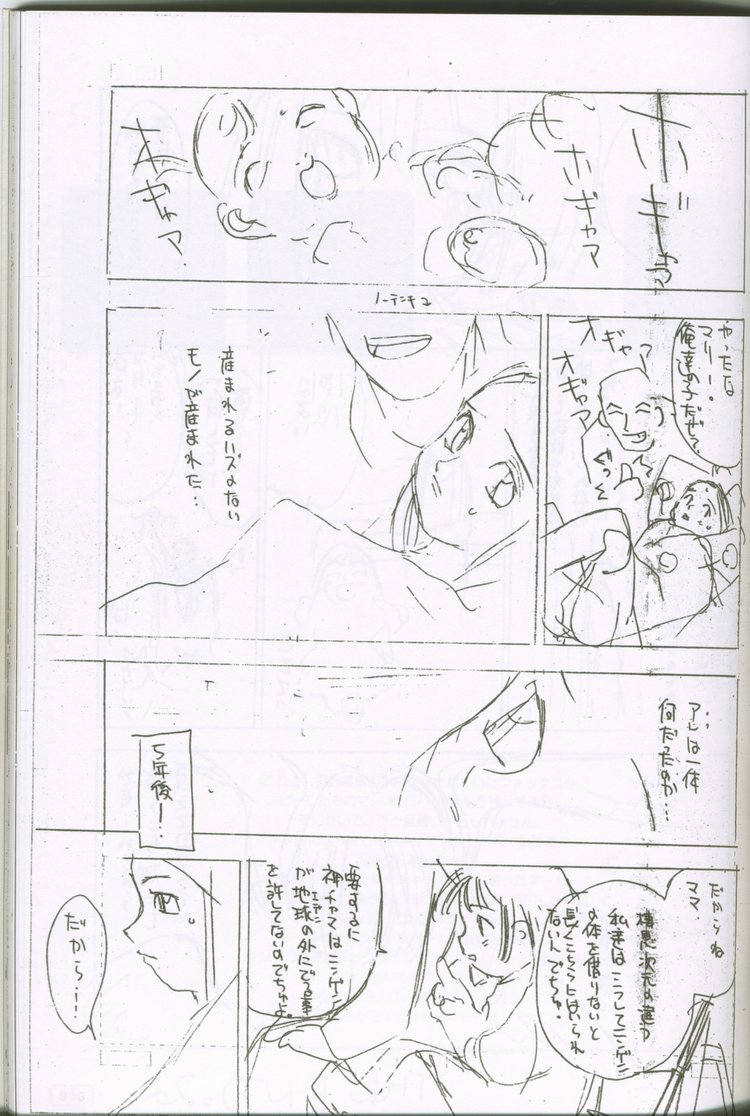 ホギャマ
ホギャマ
オギャマ
やったな
マリー。
俺達の子だぜ。
オギャア
オギャマ
ぐっ
ノーテンキコ
産まれるハズのない
モノが産まれた‥
アレは一体
何だったのか…
5年後ー‥
だからね
ママ、
棲息次元の違う
私達はこうしてニンゲン
の体を借りないと
長くこちらにはいられ
ないんでちゅ!
要するに
神チャマはニンゲン
が地球の外にでる事
エデン
を許してないのでちゅよ。
だから‥!